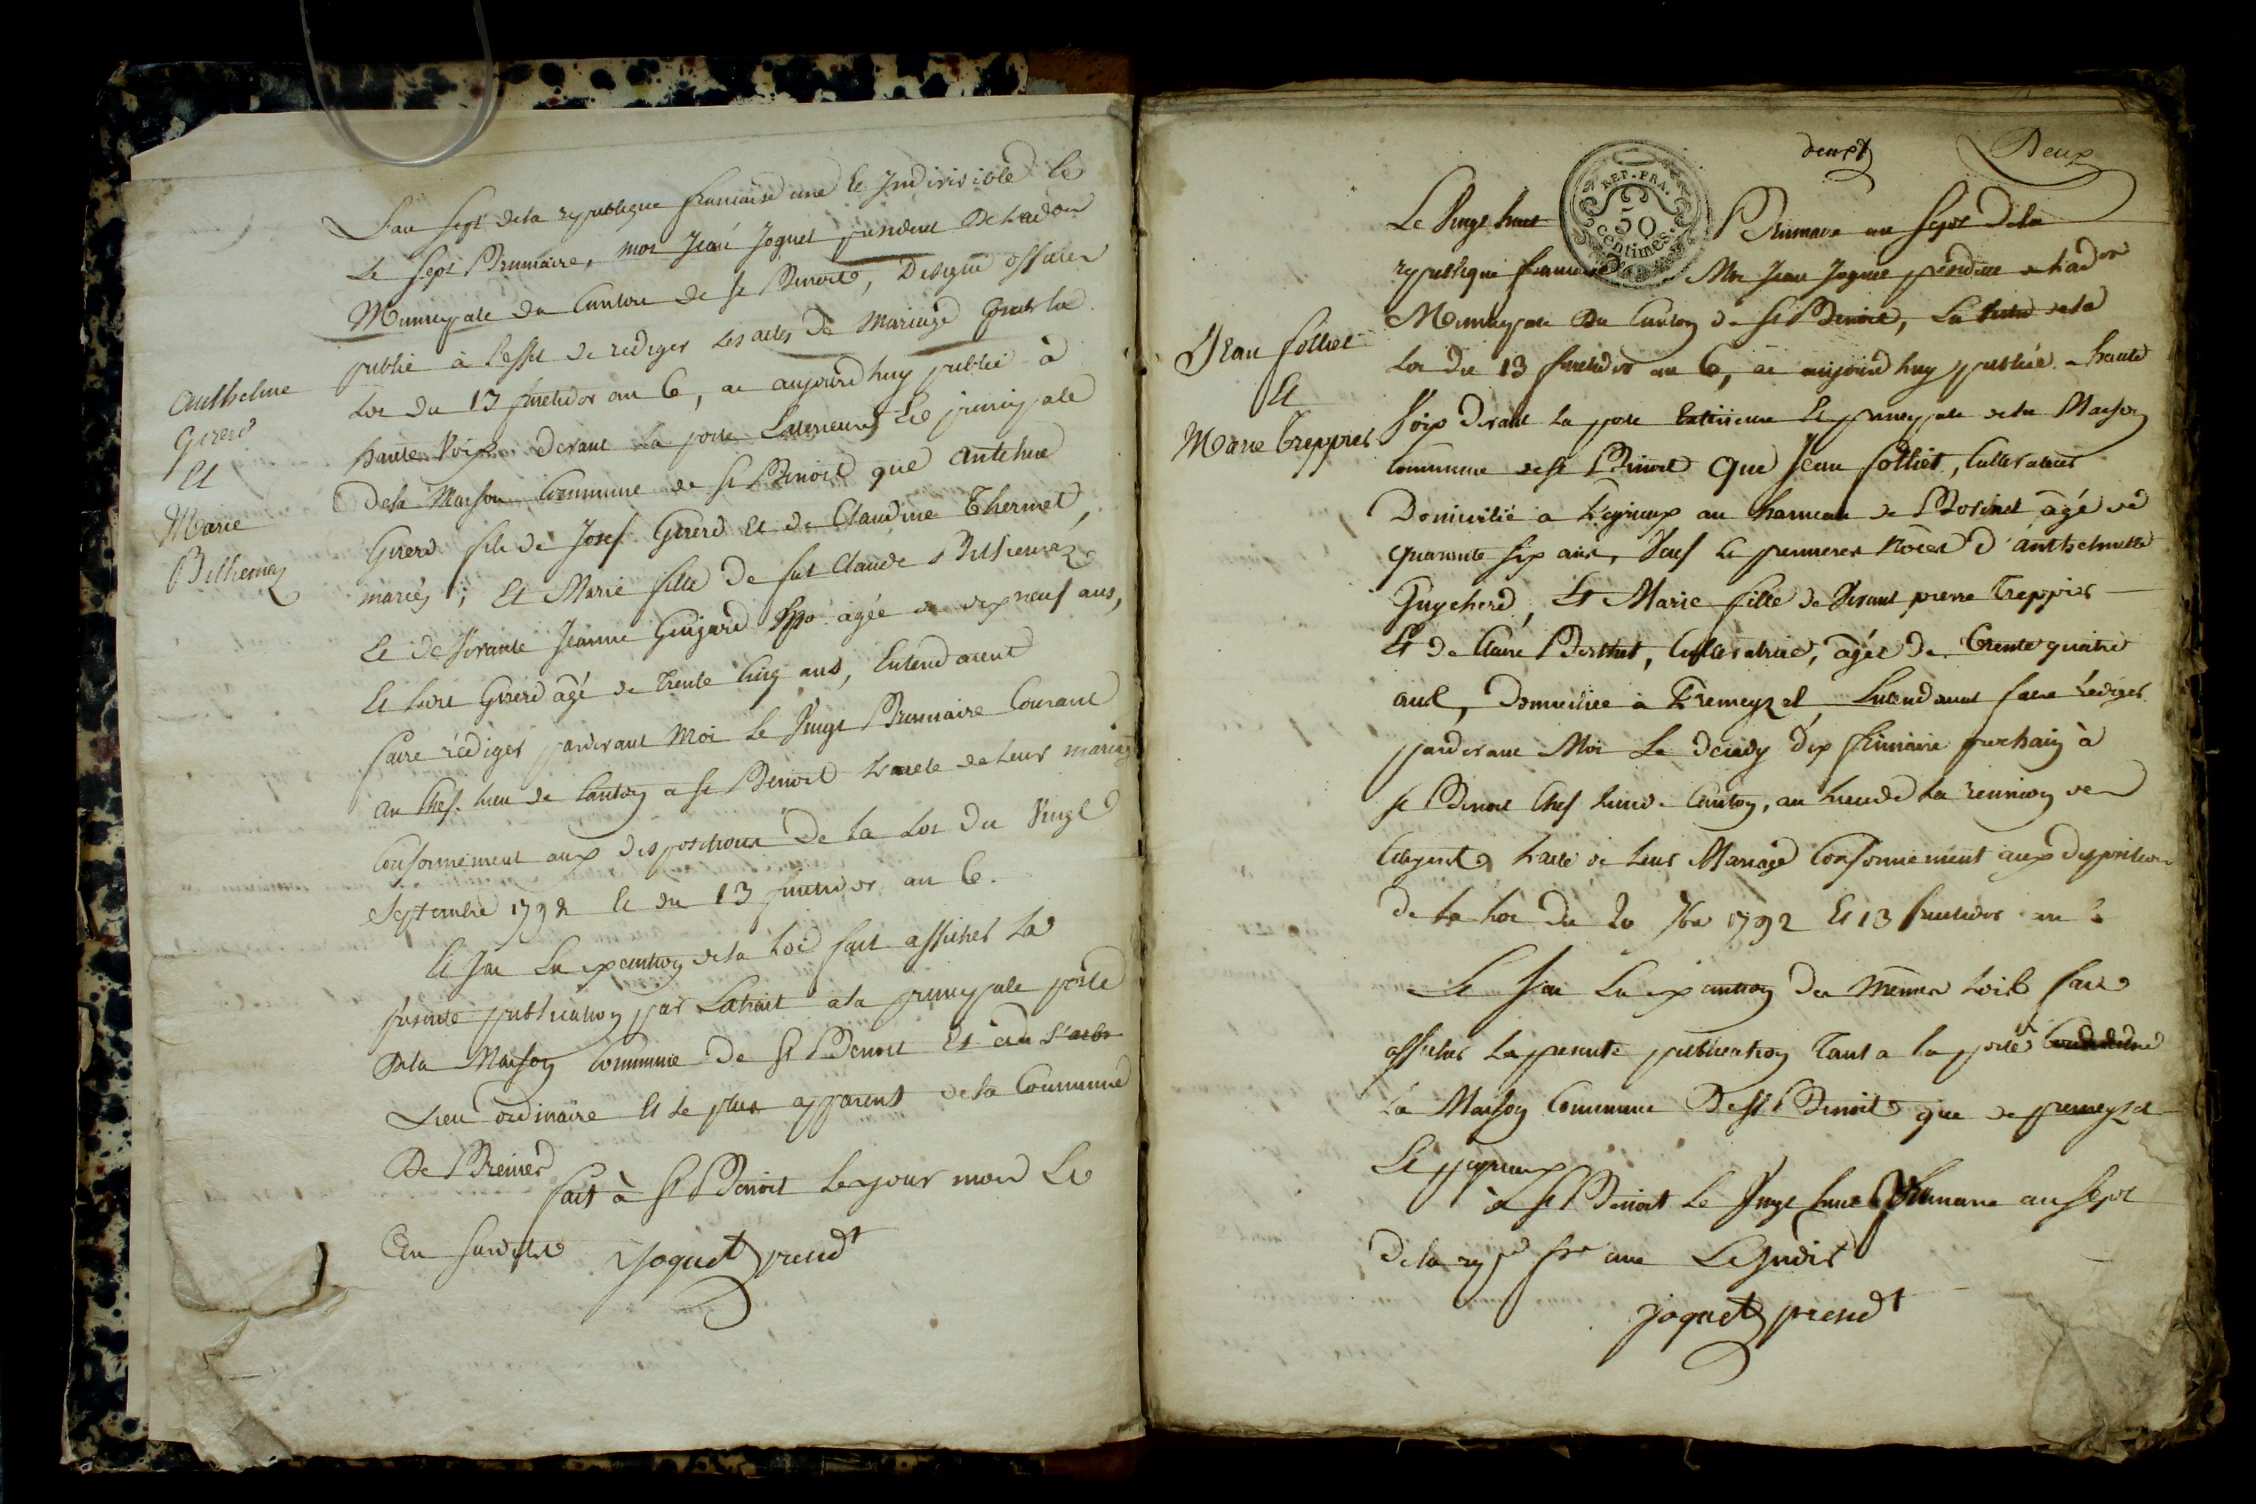 Anthelme
Girerd
Et
Marie
Billiemaz
L'an sept dela republique francaise une Et Indivisible Et
Le sept Brumaire, moi Jean Joguet president De L'adon
Municipale du Canton de St Benoit, Designé officier
public à l'effet de rediger Les actes de Mariage par la
Loi du 13 fructidor an 6, ai aujourdhuy publié à
haute Voix devant La porte Exterieure Et principale
Dela Maison Commune de St Benoit que anthelme
Girerd fils de Josef Girerd Et de Claudine Thermet,
mariés ; Et Marie fille de fut Claude Billiemaz
Et de Vivante Jeanne Guigard agée de dix neuf ans,
Et Ledit Girerd âgé de Trente Cinq ans, Entendaient
faire rédiger pardevant Moi Le Vingt Brumaire Courant
au Chef. Lieu de Canton a St Benoit L'acte de Leur mariage
Conformément aux dispositions De La Loi du Vingt
Septembre 1792 Et du 13 fructidor an 6.
Et J'ai En execution dela Loi fait afficher La
presente publication par Extrait a la principale porte
Dela Maison Commune de St Benoit Et au
Lieu ordinaire Et le plus apparent dela Commune
De Brenier
fait à St Benoit Le jour mois Et
an susdits Joguet presdt
deuxt Deux
REP. FRA.
50
centimes.
Jean folliet
Et
Marie Treppier
Le Vingt huit Brumaire an Sept Dela
republique francaise Moi Jean Joguet president de L'adon
Municipale Du Canton de St Benoit, En dela
Loi du 13 fructidor an 6, ai aujourdhuy publié a haute
Voix Devant La porte Exterieure Et principale dela Maison
Commune de St Benoit Que Jean folliet, Cultivateur
Domicilié a Peyrieux au hameau de âgé de
quarante six ans, Veuf En premieres Noces d'anthelmette
Guycherd, Et Marie fille de Vivant pierre Treppier
Et de Claire Berthet, Cultivatrice, âgée de Trente quatre
ans, Domiciliée à Premeyzel Entendaient faire rédiger
pardevant Moi Le decady Dix frimaire prochain à
St Benoit Chef Lieu de Canton, au Lieu de La reunion des
Citoyens, L'acte de Leur Mariage Conformement aux dispositions
De La Loi du 20 7bre 1792 Et 13 fructidor an 6
Et J'ai En execution des Mêmes Loix fait
afficher La presente publication Tant a la porte de
La Maison Commune De St Benoit que de premeyzel
Et peyrieux
à St Benoit Le Vingt huit Brumaire an Sept
Dela rep fse une Et Indiv
Joguet presidt